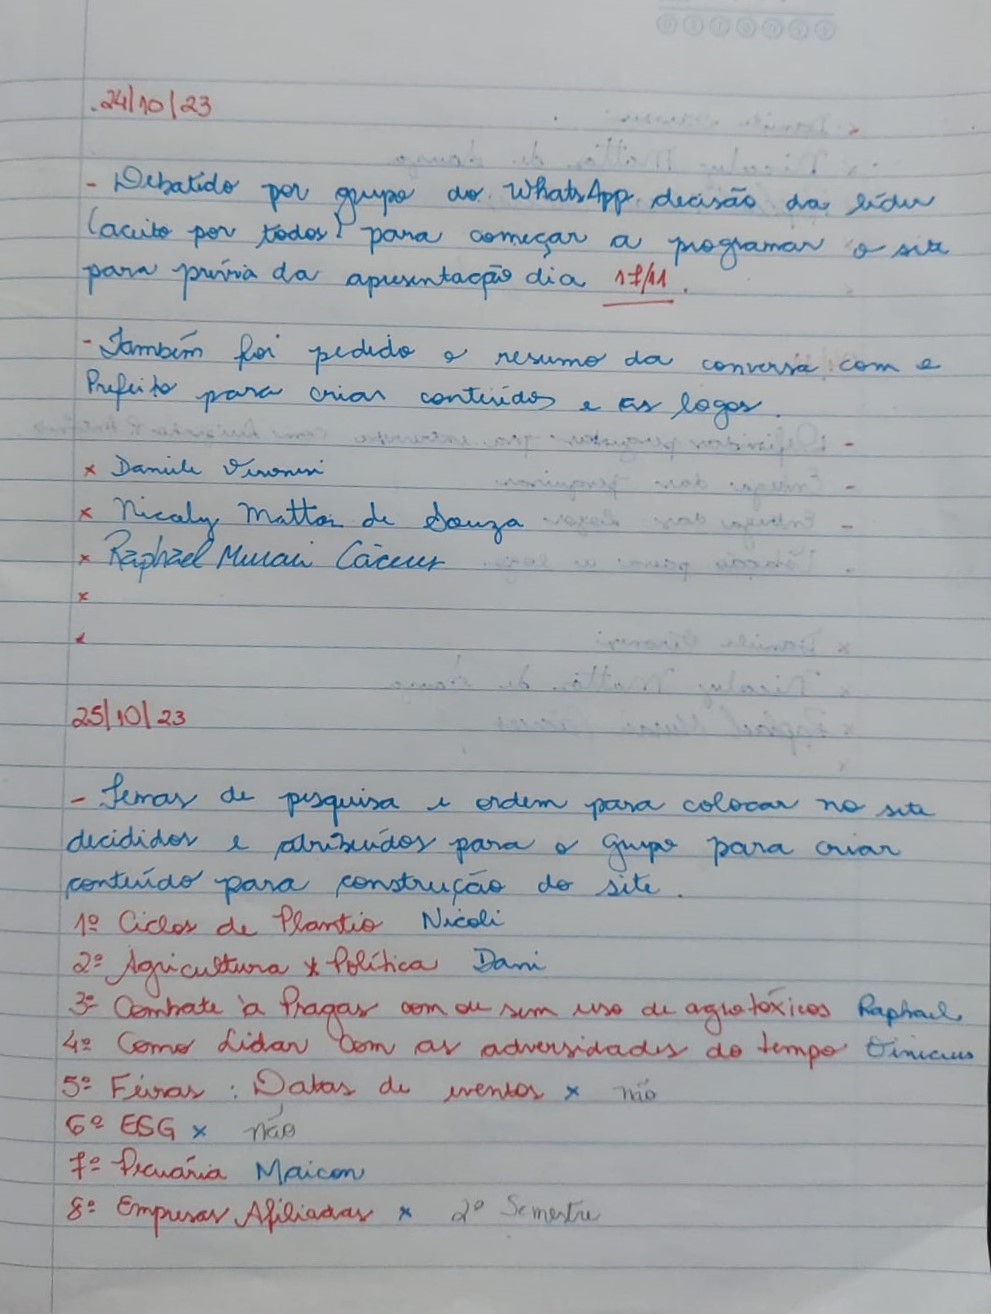 .24/10/23
- Debatido por grupo do WhatsApp, decisão da líder
(aceito por todos) para começar a programar o site
para prévia da apresentação dia 17/11.
- Também foi pedido o resumo da conversa com o
Prefeito para criar conteúdos e as logos.
x Daniele
x Nicaly Mattos de Souza
x Raphael Murari Cáceres
x
x
25/10/23
- Temas de pesquisa e ordem para colocar no site
decididos e atribuídos para o grupo para criar
conteúdo para construção do site.
1º Ciclos de Plantio Nicoli
2º Agricultura x Política Dani
3º Combate à Pragas com ou sem uso de agrotóxicos Raphael
4º Como Lidar Com as adversidades do tempo Vinicius
5º Feiras : Datas de eventos x não
6º ESG x não
7º Pecuária Maicon
8º Empresas Afiliadas x 2º Semestre